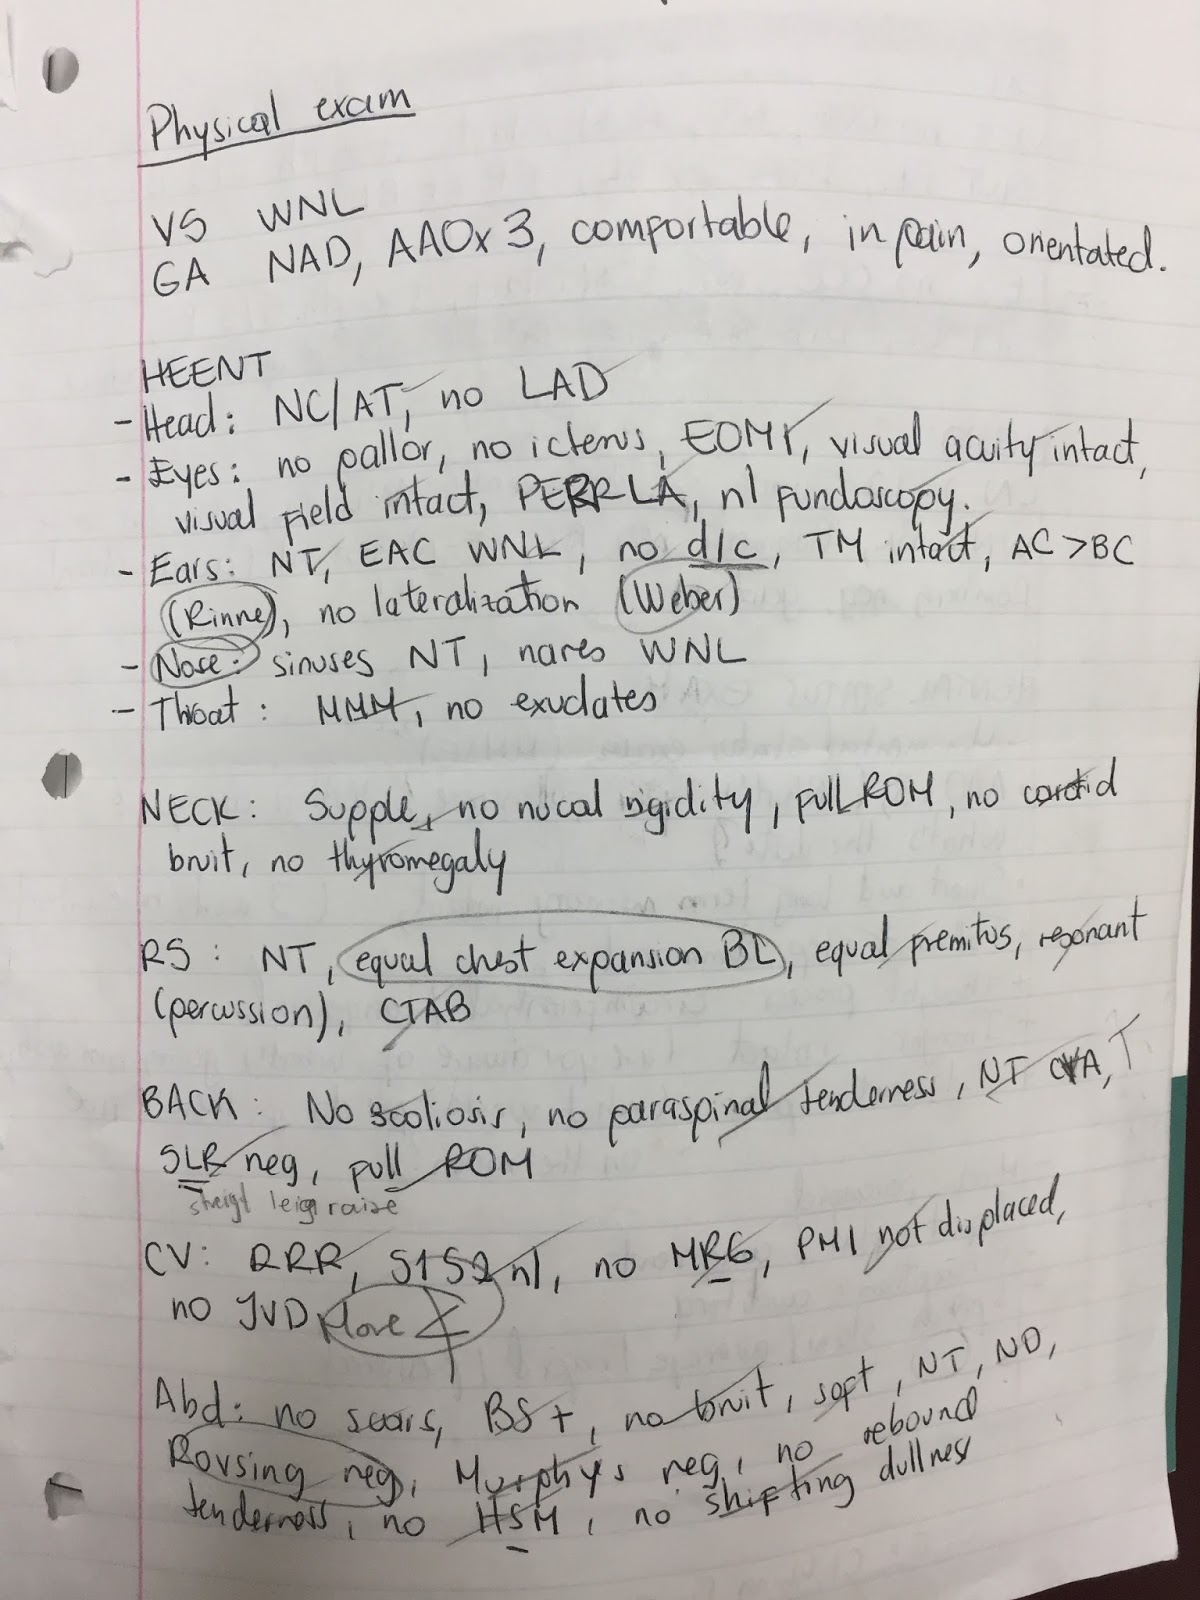 Physical exam
VS WNL
GA NAD, AAOx3, comfortable, in pain, orientated.
HEENT
- Head: NC/AT, no LAD
- Eyes: no pallor, no icterus, EOMI, visual acuity intact,
visual field intact, PERRLA, nl fundoscopy.
- Ears: NT, EAC WNL, no d/c, TM intact, AC>BC
(Rinne), no lateralization (Weber)
- Nose: sinuses NT, nares WNL
- Throat: MMM, no exudates
NECK: Supple, no nucal rigidity, full ROM, no carotid
bruit, no thyromegaly
RS: NT, equal chest expansion BL, equal fremitus, resonant
(percussion), CTAB
BACK: No scoliosis, no paraspinal tenderness, NT CVA,
SLR neg, full ROM
leig raise
CV: RRR, S1S2 nl, no MRG, PMI not displaced,
no JVD
Abd: no scars, BS+, no bruit, soft, NT, ND,
Rovsing neg, Murphy's neg, no rebound
tenderness, no HSM, no shifting dullness